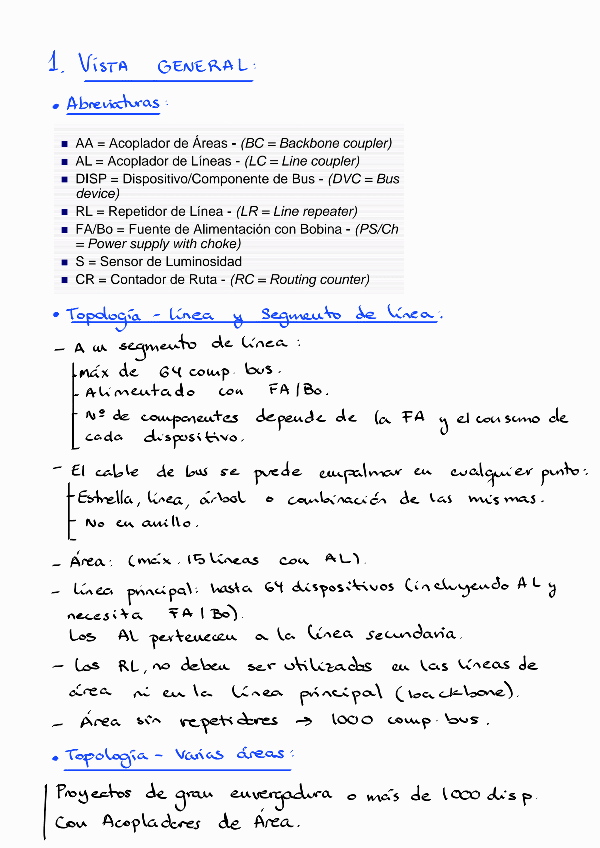 1. VISTA GENERAL:
• Abreviaturas:
■ AA = Acoplador de Áreas - (BC = Backbone coupler)
■ AL = Acoplador de Líneas - (LC = Line coupler)
■ DISP = Dispositivo/Componente de Bus - (DVC = Bus
device)
■ RL = Repetidor de Línea - (LR = Line repeater)
■ FA/Bo = Fuente de Alimentación con Bobina - (PS/Ch
= Power supply with choke)
■ S = Sensor de Luminosidad
■ CR = Contador de Ruta - (RC = Routing counter)
• Topología - línea y segmento de línea:
- A un segmento de línea:
máx de 64 comp. bus.
- Alimentado con FA/Bo.
- Nº de componentes depende de la FA y el consumo de
cada dispositivo.
- El cable de bus se puede empalmar en cualquier punto:
- Estrella, línea, árbol o combinación de las mismas.
- No en anillo.
- Área: (máx. 15 líneas con AL).
- línea principal: hasta 64 dispositivos (incluyendo AL y
necesita FA/Bo).
Los AL pertenecen a la línea secundaria.
- Los RL, no deben ser utilizados en las líneas de
área ni en la línea principal (backbone).
- Área sin repetidores → 1000 comp. bus.
• Topología - Varias áreas:
Proyectos de gran envergadura o más de 1000 disp.
Con Acopladores de Área.